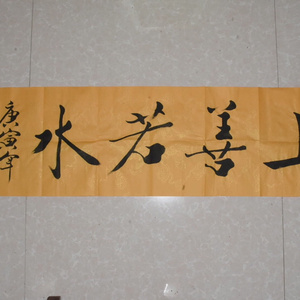 上善若水
庚寅年